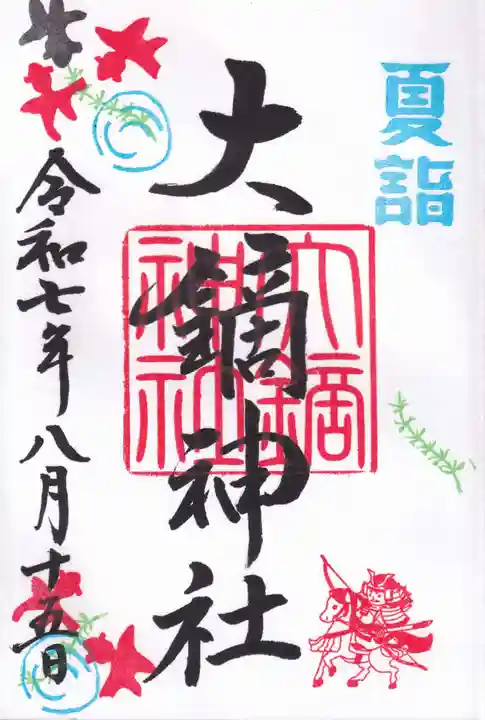 夏詣
大鏑神社
大鏑神社
令和七年八月十五日